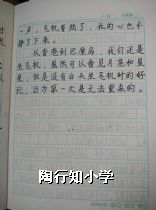 一声，飞机着陆了，我的心也平
静了下来。
从香港到巴厘岛，我们还是
坐飞机，虽然可以看见月亮和星
星，但是没有白天坐飞机时的好
玩，因为第一次是无法重来的。
陶行知小学